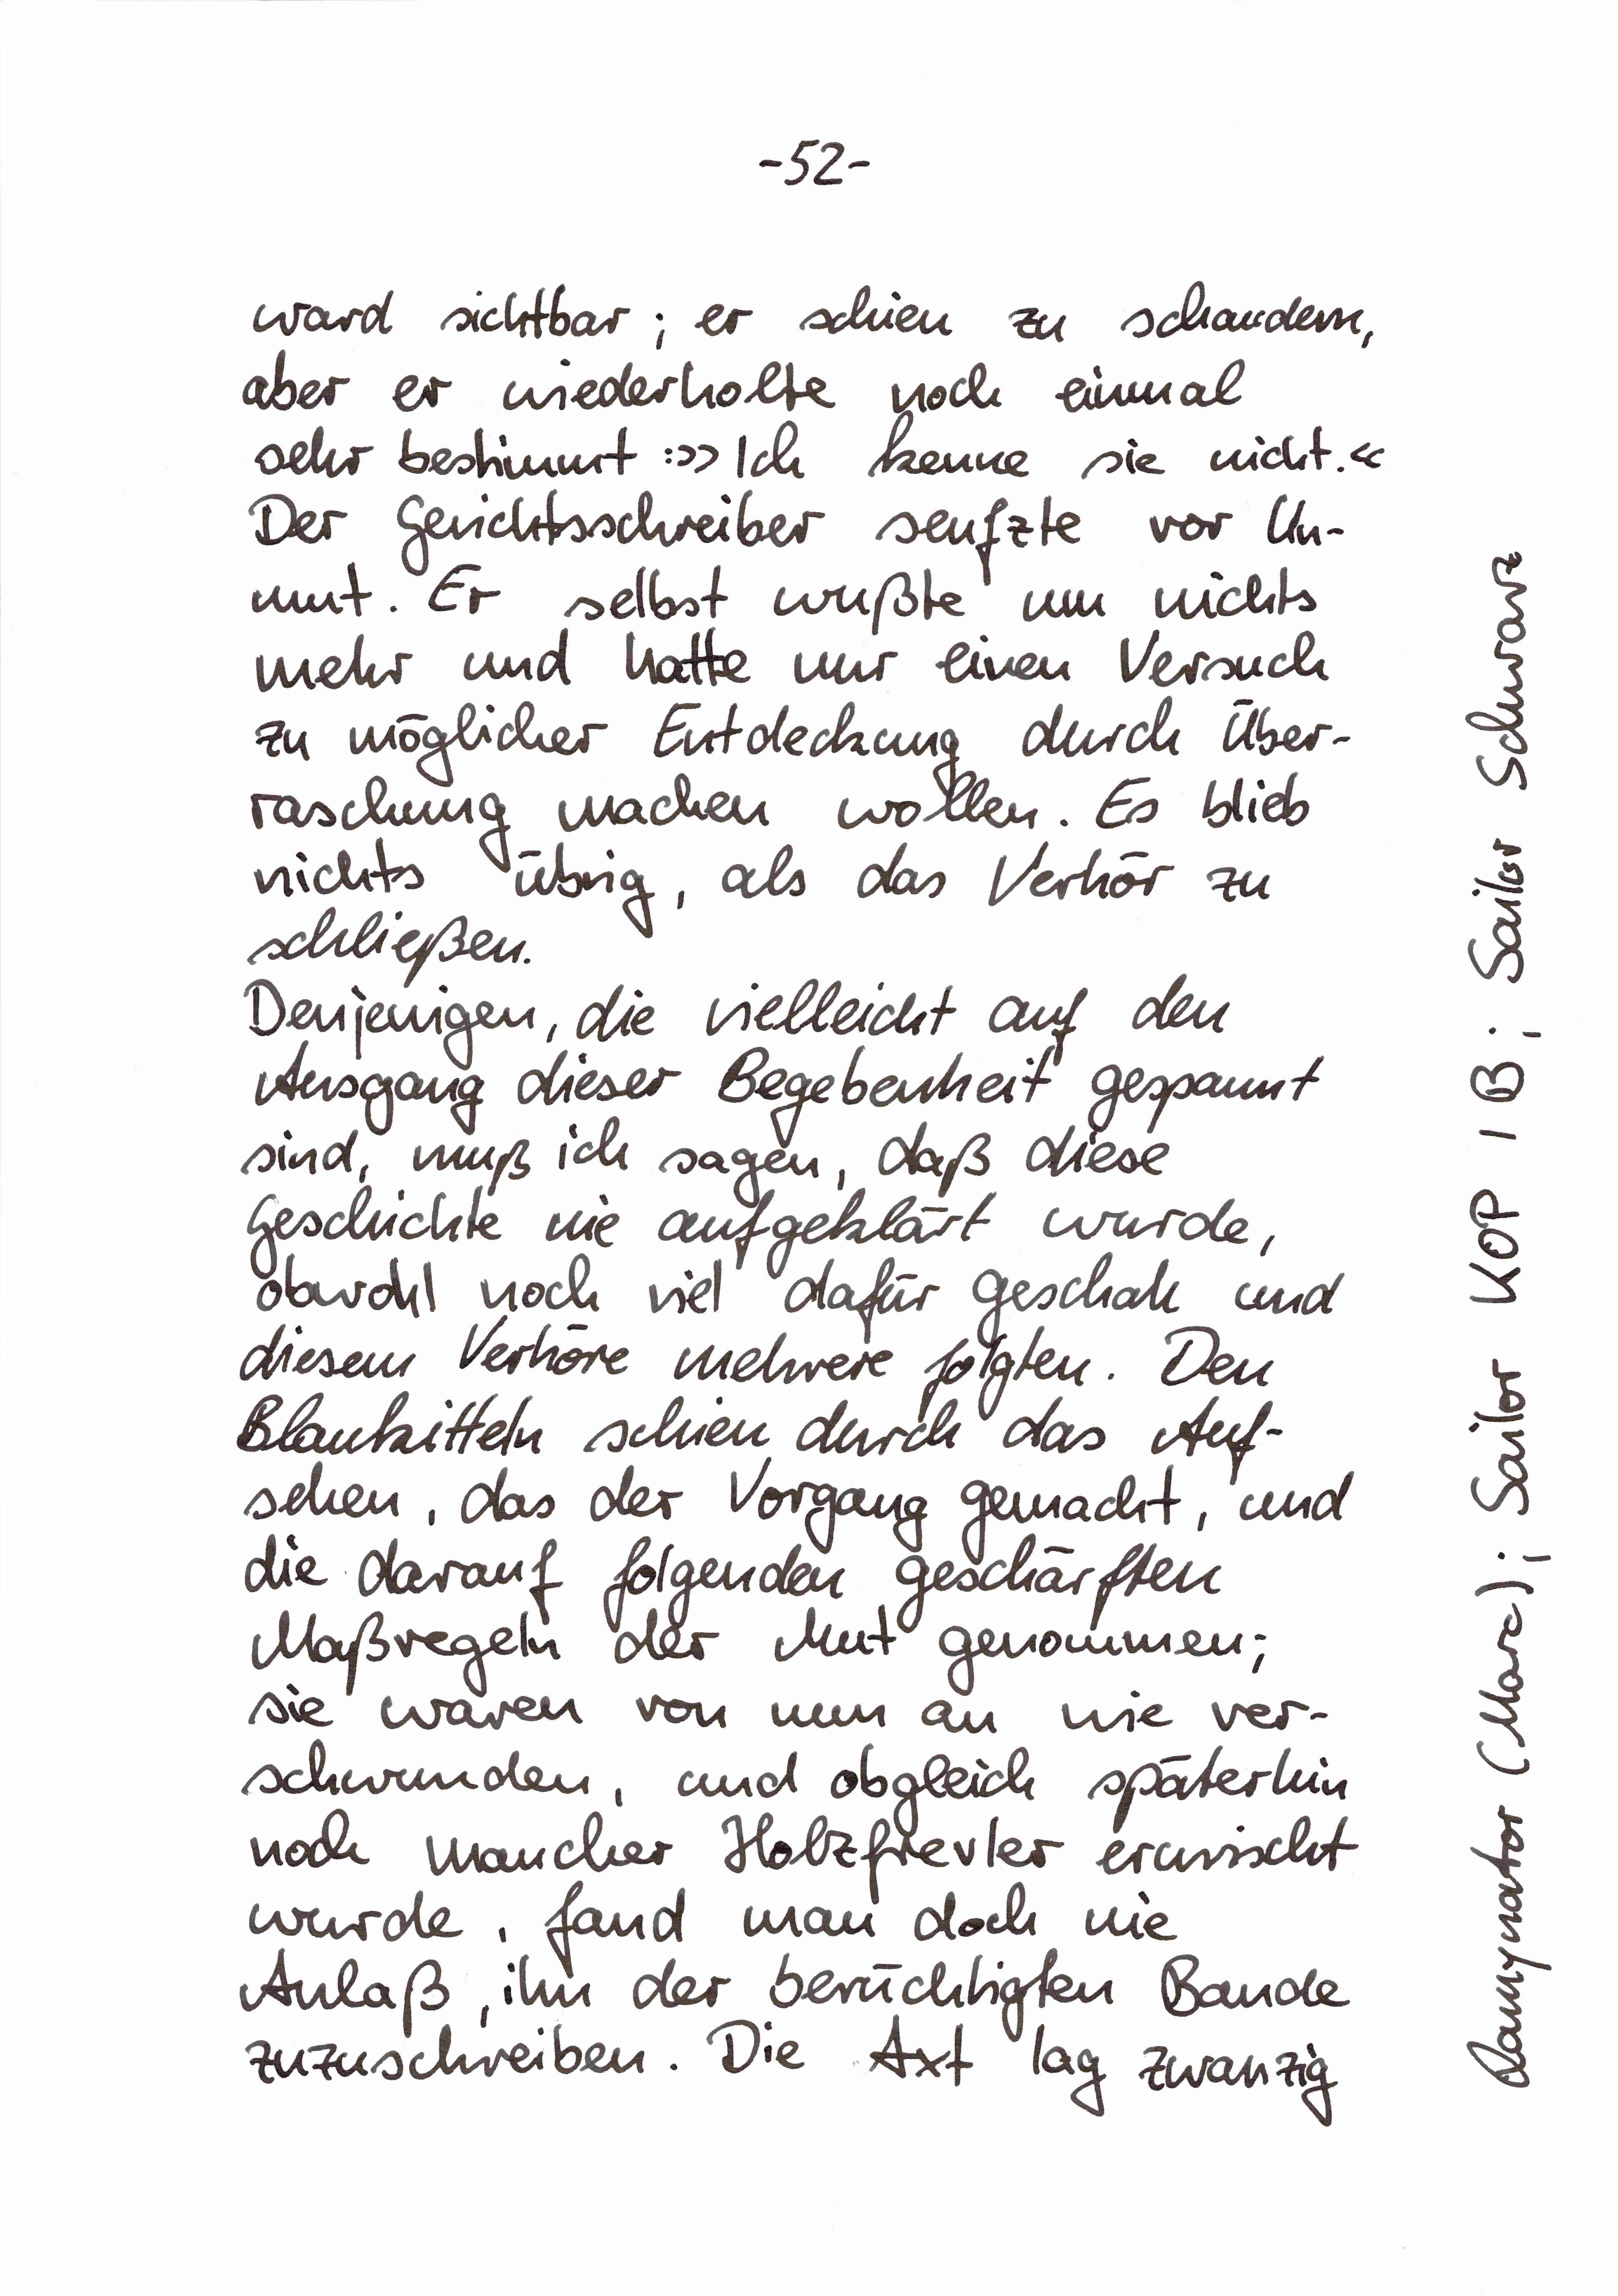 -52-
ward sichtbar; er schien zu schaudern,
aber er wiederholte noch einmal
sehr bestimmt: »Ich kenne sie nicht.«
Der Gerichtsschreiber seufzte vor Un-
mut. Er selbst wußte um nichts
mehr und hatte nur einen Versuch
zu möglicher Entdeckung durch Über-
raschung machen wollen. Es blieb
nichts übrig, als das Verhör zu
schließen.
Denjenigen, die vielleicht auf den
Ausgang dieser Begebenheit gespannt
sind, muß ich sagen, daß diese
Geschichte nie aufgeklärt wurde,
obwohl noch viel dafür geschah und
diesem Verhöre mehrere folgten. Den
Blaukitteln schien durch das Auf-
sehen, das der Vorgang gemacht, und
die darauf folgenden geschärften
Maßregeln der Mut genommen;
sie waren von nun an wie ver-
schwunden, und obgleich späterhin
noch mancher Holzfrevler erwischt
wurde, fand man doch nie
Anlaß, ihn der berüchtigten Bande
zuzuschreiben. Die Axt lag zwanzig
(Marc); Sailor KOP 1B; Sailor Schwarz